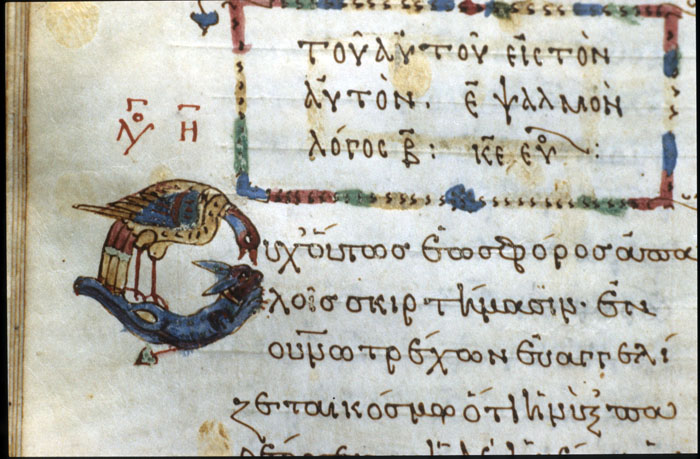 τοῦ αὐτοῦ εἰς τὸν
αὐτὸν. ε̄ ψαλμὸν
λόγος β̄: κ̄ε εὐ :
λογ η̄
Οὐχ οὕτως ἑωσφόρος ἁπα
λοῖς σκιρτήμασιν· ἐν
οὐν̅ω τρέχων εὐαγγελί
ζεται κόσμω ὅτι ἡ νὺξ πα